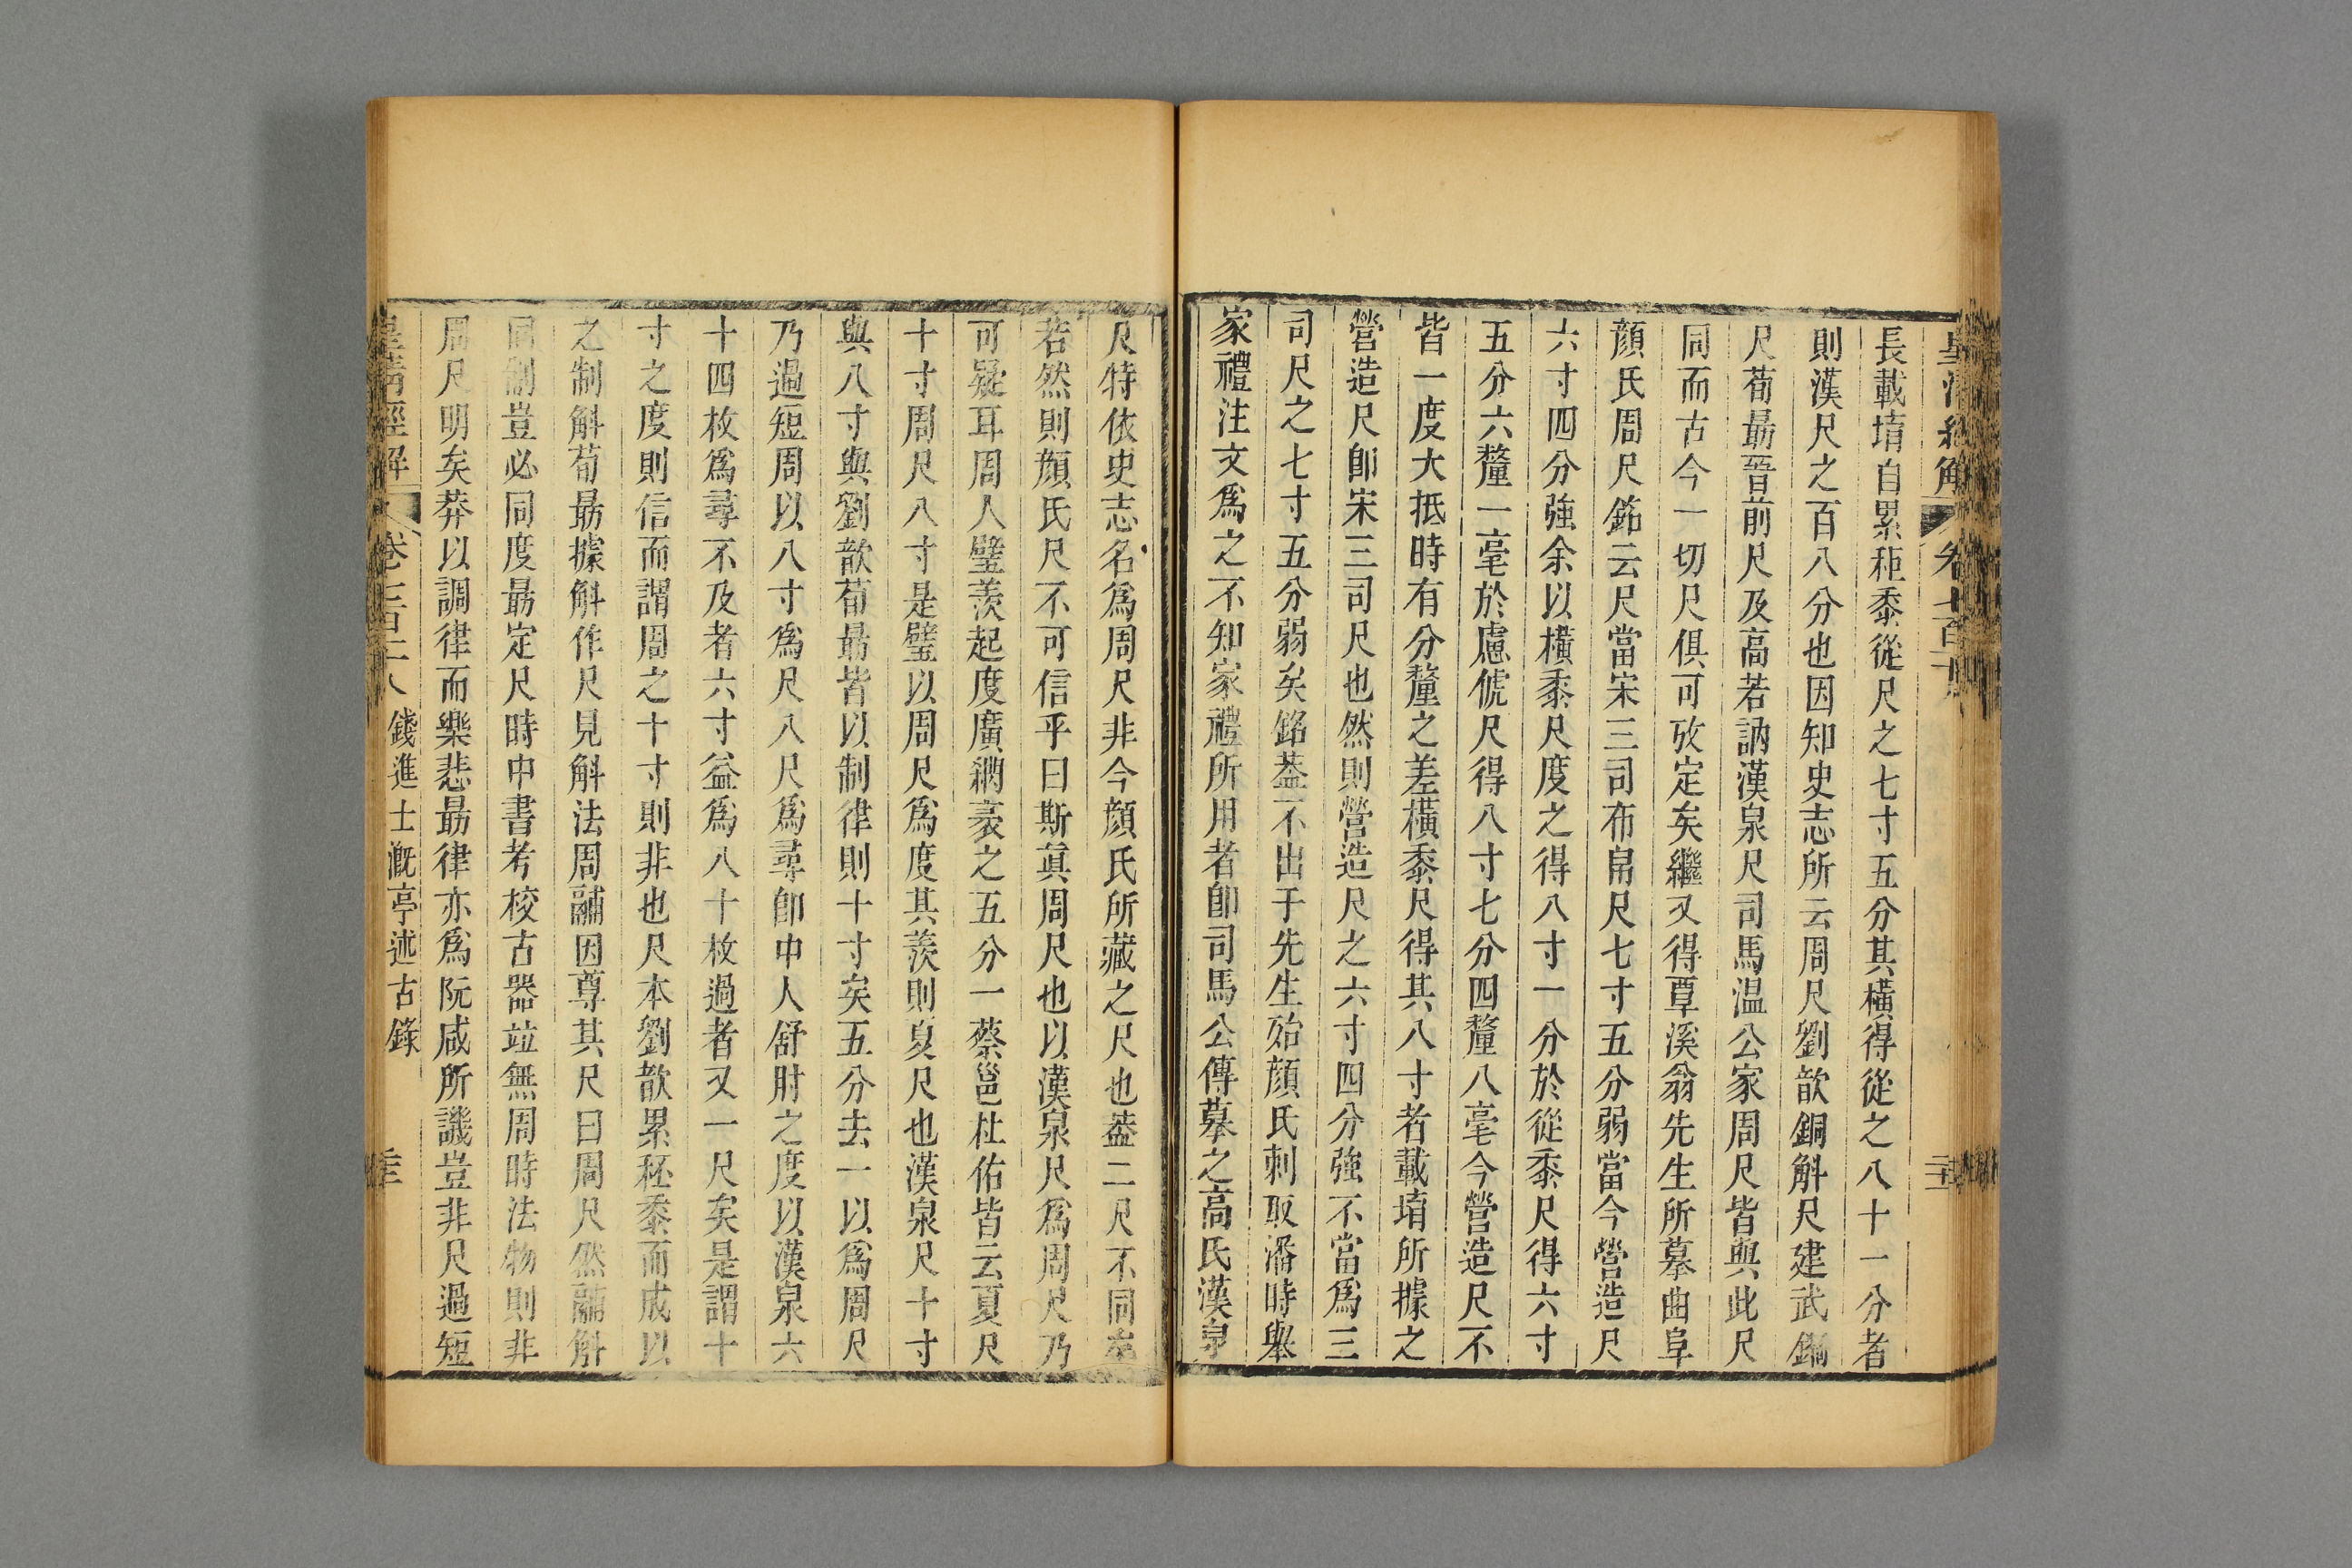 長載堉自累秬黍從尺之七寸五分其橫得從之八十一分者
則漢尺之百八分也因知史志所云周尺劉歆銅斛尺建武銅
尺荀勗晉前尺及高若訥漢泉尺司馬温公家周尺皆與此尺
同而古今一切尺俱可攷定矣繼又得覃溪翁先生所摹曲阜
顏氏周尺銘云尺當宋三司布帛尺七寸五分弱當今營造尺
六寸四分強余以橫黍尺度之得八寸一分於從黍尺得六寸
五分六釐一毫於慮俿尺得八寸七分四釐八毫今營造尺不
皆一度大抵時有分釐之差橫黍尺得其八寸者載堉所據之
營造尺卽宋三司尺也然則營造尺之六寸四分強不當爲三
司尺之七寸五分弱矣銘葢不出于先生殆顏氏刺取潘時舉
家禮注文爲之不知家禮所用者卽司馬公傳摹之高氏漢泉
尺特依史志名爲周尺非今顏氏所藏之尺也葢二尺不同
若然則顏氏尺不可信乎曰斯眞周尺也以漢泉尺爲周尺乃
可疑耳周人璧羨起度廣網袤之五分一蔡邕杜佑皆云夏尺
十寸周尺八寸是璧以周尺爲度其羨則夏尺也漢泉尺十寸
與八寸與劉歆荀勗皆以制律則十寸矣五分去一以爲周尺
乃過短周以八寸爲尺八尺爲尋卽中人舒肘之度以漢泉六
十四枚爲尋不及者六寸益爲八十枚過者又一尺矣是謂十
寸之度則信而謂周之十寸則非也尺本劉歆累秠黍而成以
之制斛荀勗據斛作尺見斛法周鬴因尊其尺曰周尺然鬴斛
同制豈必同度勗定尺時中書考校古器竝無周時法物則非
周尺明矣莽以調律而樂悲勗律亦爲阮咸所譏豈非尺過短
皇清經解 錢進士漑亭述古錄